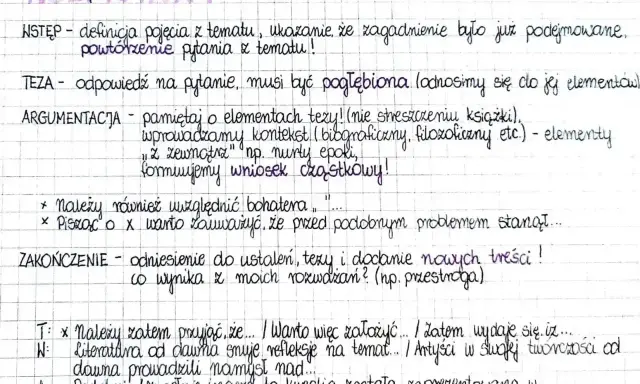 WSTĘP - definicja pojęcia z tematu, ukazanie, że zagadnienie było już podejmowane,
powtórzenie pytania z tematu!
TEZA - odpowiedź na pytanie, musi być pogłębiona (odnosimy się do jej elementów)
ARGUMENTACJA - pamiętaj o elementach tezy! (nie streszczeniu książki),
wprowadzamy kontekst (biograficzny, filozoficzny etc.) - elementy
„z zewnątrz" np. nurty epoki,
formułujemy wniosek cząstkowy!
x Należy również uwzględnić bohatera „ "...
x Pisząc o x warto zauważyć, że przed podobnym problemem stanął...
ZAKOŃCZENIE - odniesienie do ustaleń, tezy i dodanie nowych treści!
co wynika z moich rozważań? (np. przestroga)
T: x Należy zatem przyjąć, że... / Warto więc założyć... / Zatem wydaje się, iż...
W: Literatura od dawna snuje refleksje na temat... / Artyści w swojej twórczości od
dawna prowadzili namysł nad...